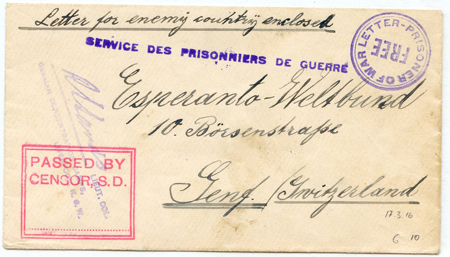 Letter for enemy country enclosed
SERVICE DES PRISONNIERS DE GUERRE
LETTER-PRISONER OF WAR
FREE
Esperanto-Weltbund
10. Börsenstraße
Genf. /Switzerland
PASSED BY
CENSOR S.D.
LIEUT. COL.
N.S.W.
17.3.16
6 10